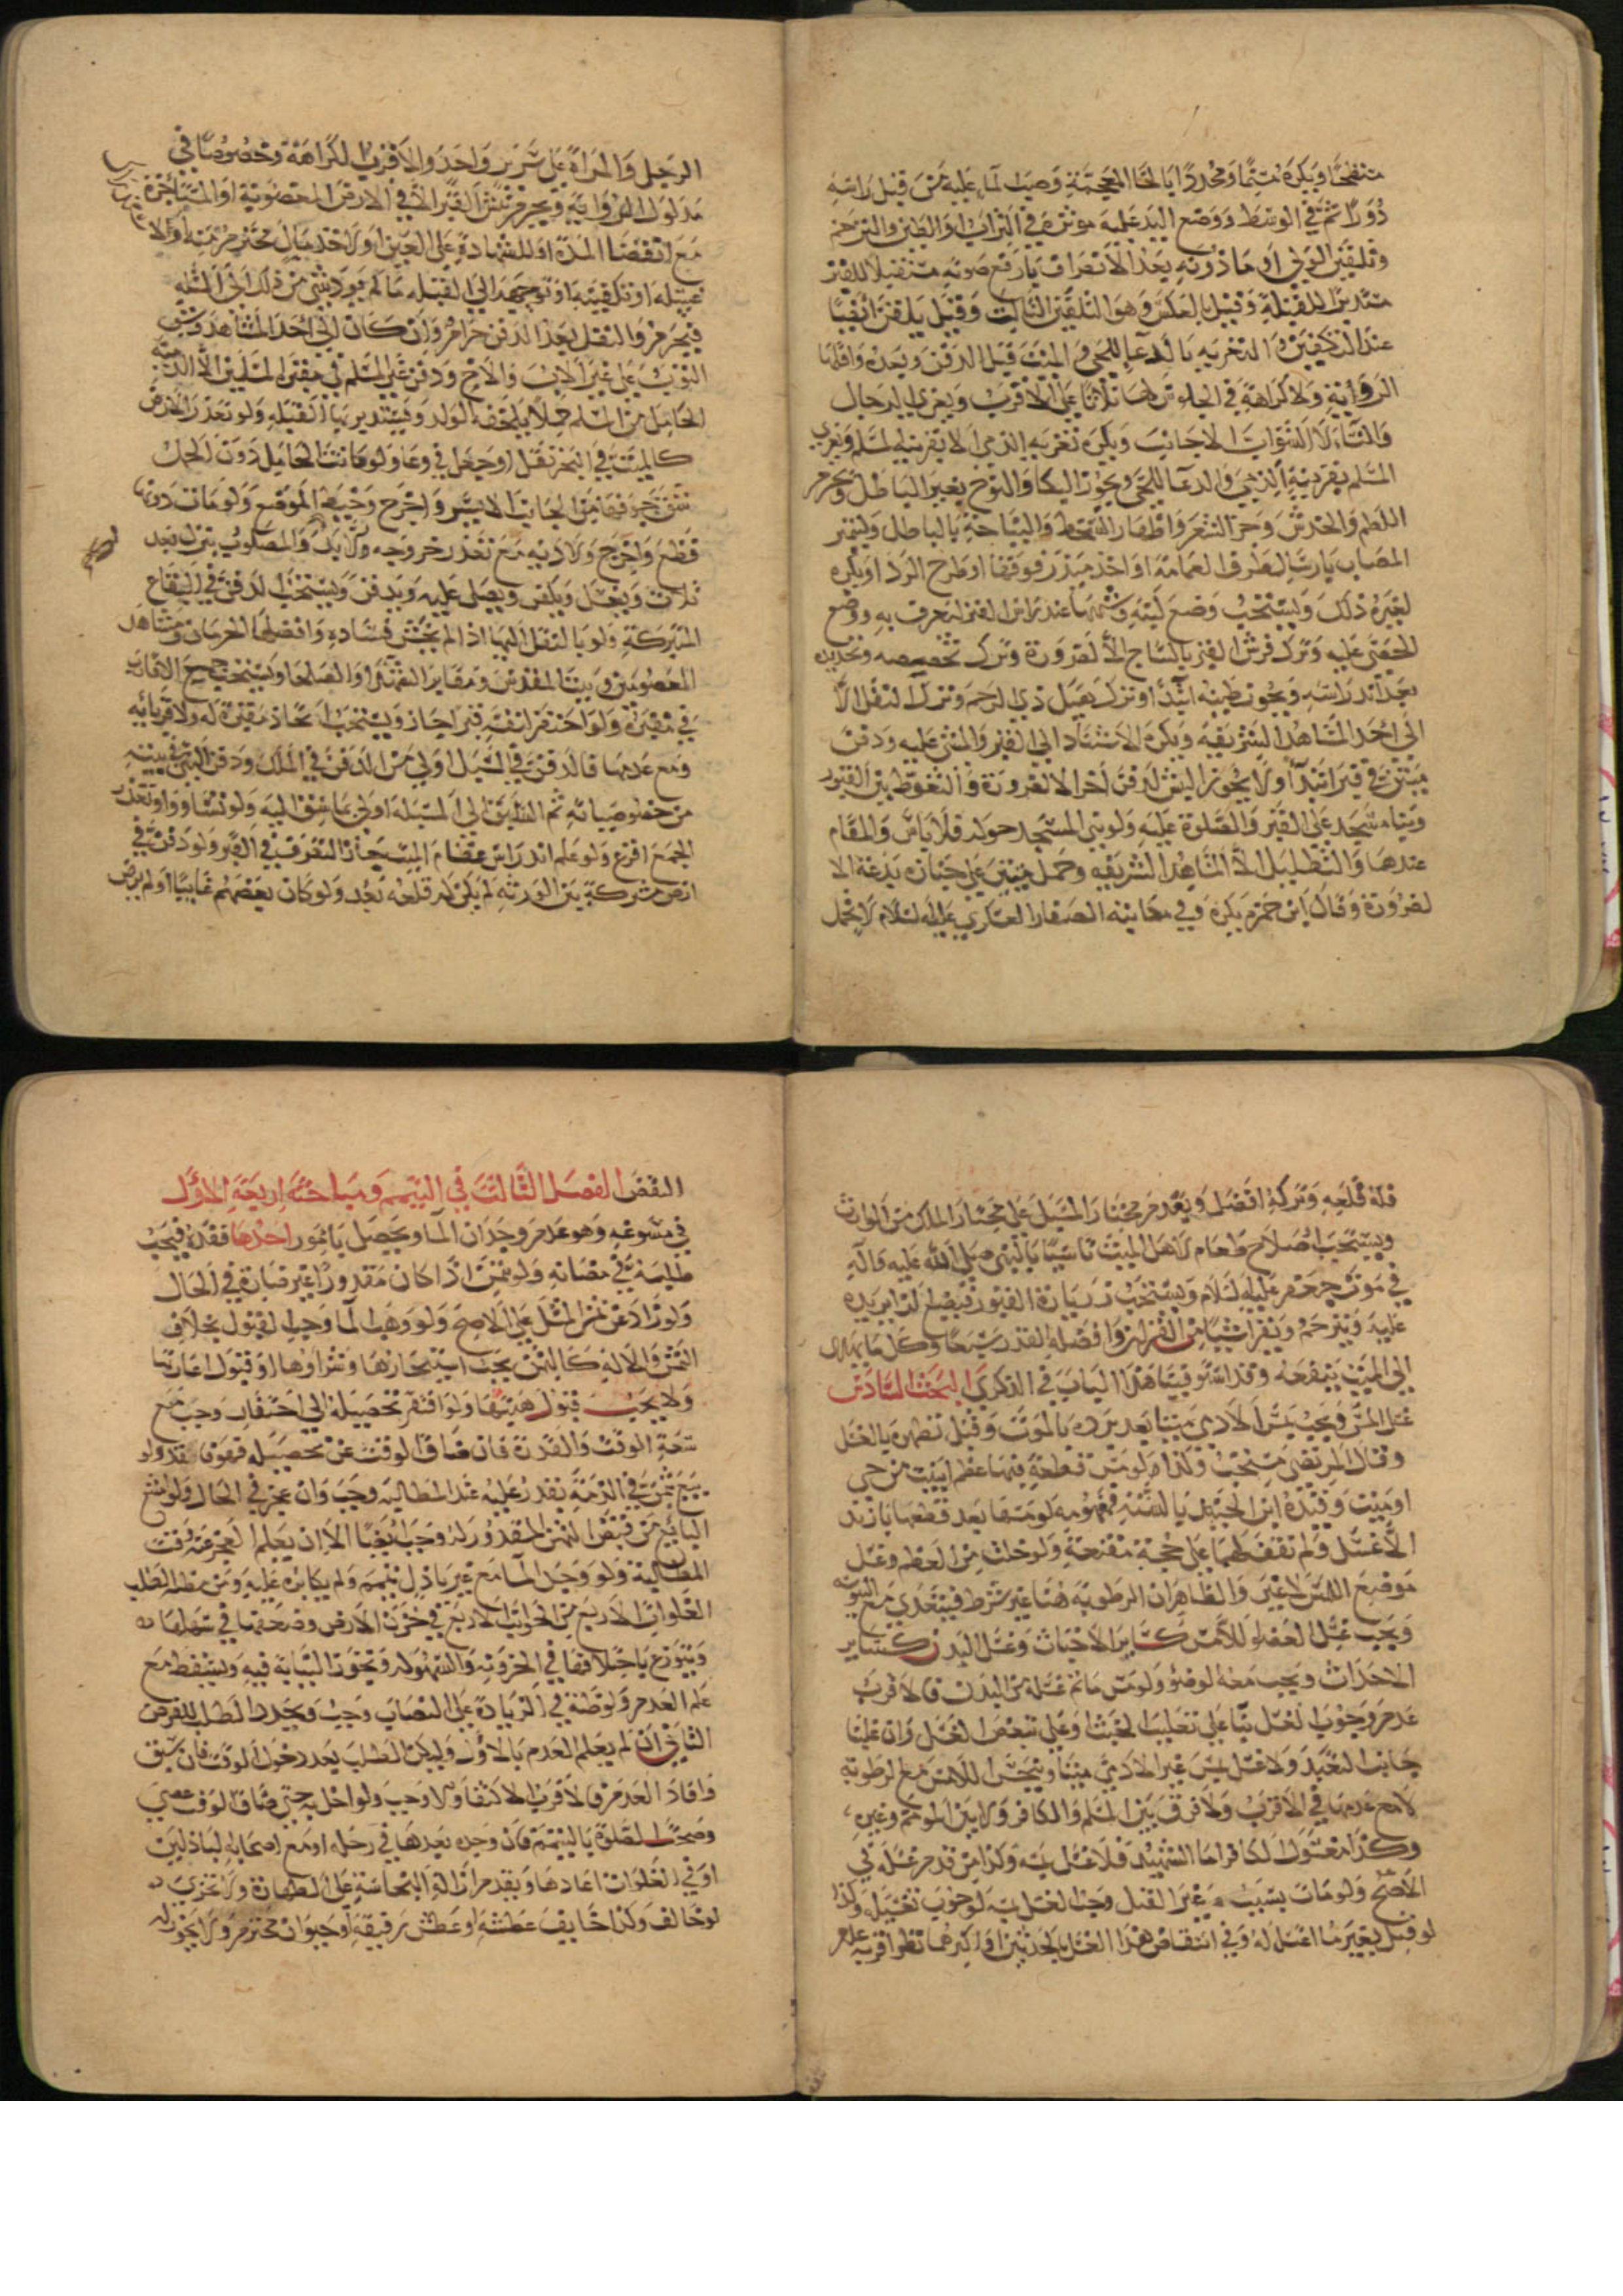 منفتحا ويكره مسنما ومجددا بالخاء المعجمة وصب الماء عليه من قبل راسه
دورا ثم في الوسط ووضع اليد عليه موثرة في التراب او الطين والترحم
وتلقين الولي او ماذونه بعد الانصراف بارفع صوته مستقبلا للقبر
مستدبرا للقبلة وقيل بالعكس وهو التلقين الثالث وقيل يلقن ايضا
عند التكفين والتعزية بالدعاء للحي والميت قبل الدفن وبعده واقلها
الروية ولا كراهة في الجلوس لها ثلاثا على الاقرب ويعزى الرجال
والنساء لا الشواب الاجانب ويكره تعزية الذمي لا بقرينه المسلم ويعزى
المسلم بقرينه الذمي والدعاء للحي ويجوز البكاء والنوح بغير الباطل ويحرم
اللطم والخدش وجز الشعر واظهار السخط والنياحة بالباطل وليتميز
المصاب بارسال طرف العمامة او اخذ ميزر فوقها او طرح الرداء ويكره
لغيره ذلك ويستحب وضع لبنة وشبهها عند راس القبر ليعرف به ووضع
الحصى عليه وترك فرش القبر بالساج الا لضرورة وترك تجصيصه وتجديده
بعد اندراسه ويجوز طينه ابتداء وترك تعميل ذي الرحم وترك النقل الا
الى احد المشاهد الشريفة ويكره الاستناد الى القبر والمشي عليه ودفن
ميتين في قبر ابتداء ولا يجوز النبش لدفن اخر الا لضرورة والتغوط بين القبور
وبناء مسجد على القبر والصلوة عليه ولو بني المسجد حوله فلا باس والمقام
عندها والتظليل الا المشاهد الشريفة وحمل ميتين على جنازة بدعة الا
لضرورة وقال ابن حمزة يكره وفي مكاتبة الصفار العسكري عليه السلام لا يحمل
الرجل والمراة على سرير واحد والاقرب الكراهة وخصوصا في
مدلول الرواية ويحرم نبش القبر الا في الارض المغصوبة او المستاجرة
مع انقضاء المدة او للشهادة على العين او لاخذ مال محترم
غسله او تكفينه او توجيهه الى القبلة ما لم يود شي من ذلك الى المثلة
فيحرم والنقل بعد الدفن حرام وان كان الى احد المشاهد وشق
الثوب على غير الاب والاخ ودفن غير المسلم في مقبرة المسلمين الا الذمية
الحامل من المسلم حملا يلحقه الولد ويستدبر بها القبلة ولو تعذر الارض
كالميت في البحر ثقل او جعل في وعاء ولو ماتت الحامل دون الحمل
شق جوفها من الجانب الايسر واخرج وخيط الموضع ولو مات دونها
قطع واخرج ولا دية مع تعذر خروجه والمصلوب ينزل بعد
ثلاث ويغسل ويكفن ويصلى عليه ويدفن ويستحب الدفن في البقاع
المتبركة ولو بالنقل اليها اذا لم يخش فساده وافضلها الحرمان ومشاهد
المعصومين وبيت المقدس ومقابر الشهداء والصلحاء ويستحب جمع الاقارب
في مقبرة ولو احتفر لنفسه قبرا جاز ويستحب اتخاذ مقبرة له ولاقربائه
ومع عدمها فالدفن في المسبل اولى من الدفن في الملك ودفن النبي في بيته
من خصوصياته ثم السابق الى المسبلة اولى ما سبق اليه ولو تساووا وتعذر
الجمع اقرع ولو علم اندراس عظام الميت جاز التصرف في القبر ولو دفن في
ارض مشتركة بين الورثة لم يكن لهم قلعه بعد ولو كان بعضهم غايبا او لم يرض
فله قلعه وتركه افضل ويقدم مختار المسبل على مختار الملك من الوارث
ويستحب اصلاح طعام لاهل الميت تاسيا بالنبي صلى الله عليه واله
في موت جعفر عليه السلام ويستحب زيارة القبور فيضع الزاير يده
عليه ويترحم ويقرا شيئا من القران وافضله القدر سبعا وكل ما يهدى
الى الميت ينفعه وقد استوفينا هذا الباب في الذكرى البحث السادس
غسل المس ويجب بمس الادمي ميتا بعد برده بالموت وقبل تطهره بالغسل
وقال المرتضى مستحب وكذا لو مس قطعة فيها عظم ابينت من حي
او ميت وقيده ابن الجنيد بالسنة فمفهومه لو مسها بعد قطعها بازيد
لا غسل ولم نقف لهما على حجة مقنعة ولو خلت من العظم وغسل
موضع اللمس لا غير والظاهر ان الرطوبة هنا غير شرط فيتعدى مع اليبوسة
ويجب غسل العضو اللامس كساير الاخباث وغسل البدن كساير
الاحداث ويجب معه الوضوء ولو مس ما تم غسله من البدن فالاقرب
عدم وجوب الغسل بناء على تغليب الخبث وعلى تبعض الغسل وان غلبنا
جانب التعبد ولا غسل بمس غير الادمي ميتا وينجس اللامس مع الرطوبة
لا مع عدمها في الاقرب ولا فرق بين المسلم والكافر ولا بين المومم وغيره
وكذا مغسول الكافر اما الشهيد فلا غسل بمسه وكذا من قدم غسله في
الاصح ولو مات بسبب غير القتل وجب الغسل بمسه لوجوب تغسيله وكذا
لو قتل بغير ما اغتسل له وفي انتقاض هذا الغسل بالحدثين او اكبرهما نظر اقربه عدم
النقض الفصل الثالث في التيمم ومباحثه اربعة الاول
في مسوغه وهو عدم وجدان الماء ويحصل بامور احدها فقده فيجب
طلبه في مضانه ولو بثمن اذا كان مقدورا غير ضار به في الحال
ولو زاد عن ثمن المثل على الاصح ولو وهب الماء وجب القبول بخلاف
الثمن والالة كالثمن يجب استيجارها وشراوها او قبول اعارتها
ولا يجب قبول هبتها ولو افتقر تحصيله الى احتفار وجب مع
سعة الوقت والقدرة فان ضاق الوقت عن تحصيله فهو فاقد ولو
بيع بثمن في الذمة يقدر عليه عند المطالبة وجب وان عجز في الحال ولو منع
البايع من قبض الثمن المقدور له وجب ايضا الا ان يعلم العجز عنه وقت
المطالبة ولو وجد الماء مع غير باذل تيمم ولم يكابره عليه ومن مظان الطلب
الغلوات الاربع من الجوانب الاربع في حزن الارض وضعفها في سهلها
ويتوزع باختلافها في الحزونة والسهولة ويجوز النيابة فيه ويسقط مع
علم العدم ولو ظنه في الزيادة على النصاب وجب ويجدد الطلب للفرض
الثاني ان لم يعلم العدم بالاول وليكن الطلب بعد دخول الوقت فان سبق
وافاد العدم فالاقرب الاكتفاء والا وجب ولو اخل به حتى ضاق الوقت عصى
وصحت الصلوة بالتيمم فان وجده بعدها في رحله او مع اصحابه الباذلين
او في الغلوات اعادها ويقدم ازالة النجاسة على الطهارة ولا تجزي
لو خالف وكذا خايف عطشه او عطش رفيقه او حيوان محترم ولا يجوز له